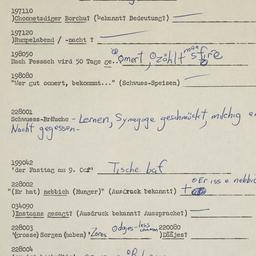 197110
)Choonetsdiger Borchu? (Bekannt? Bedeutung?)
197120
)Rumpelabend / -nacht ?
198050
Nach Pessach wird 50 Tage ge..ömert, özählt
198080
"Wer gut oomert, bekommt..." (Schwuos-Speisen)
228001
Schwuoss-Bräuche - Lernen, Synagoge geschmückt, milchig
Nacht gegessen.
199042
'der Fasttag am 9. Oof' Tische baf
228002
"(Er hat) nebbich (Hunger)" (Ausdruck bekannt?) + öEr iss a nebbic
034090
)Instoons gesagt? (Ausdruck bekannt? Aussprache?)
228003 220080
'(grosse) Sorgen (haben)' Zores )Dääjes?
228004